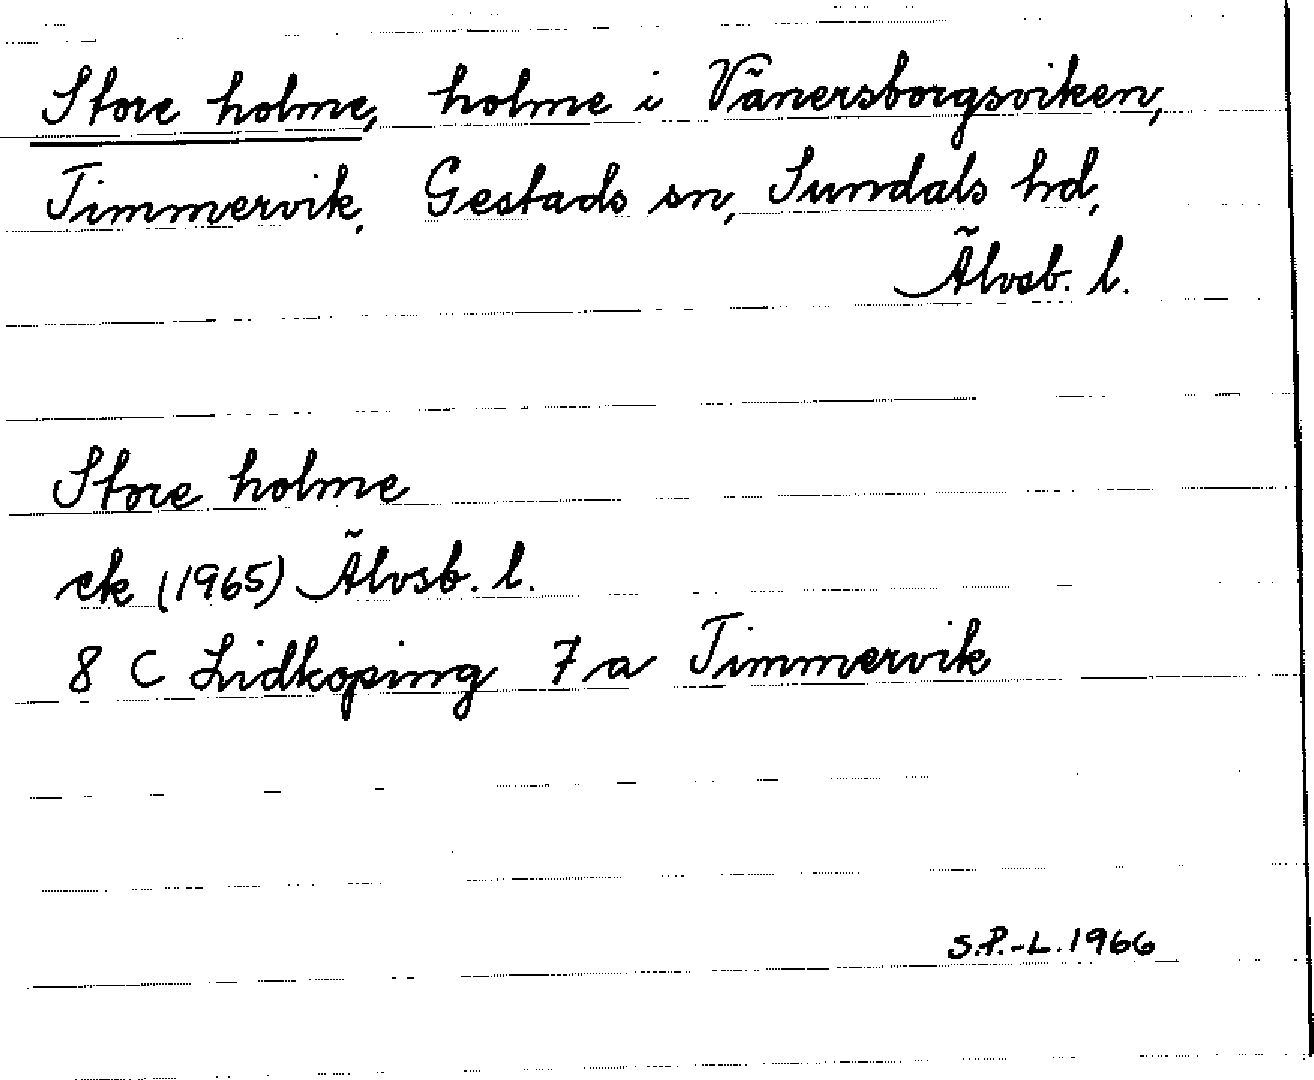 Store holme, holme i Vänersborgsviken,
Timmervik, Gestads sn, Sundals hd,
Älvsb. l.
Store holme
ek (1965) Älvsb. l.
8 C Lidkoping 7 a Timmervik
S.P.-L. 1966